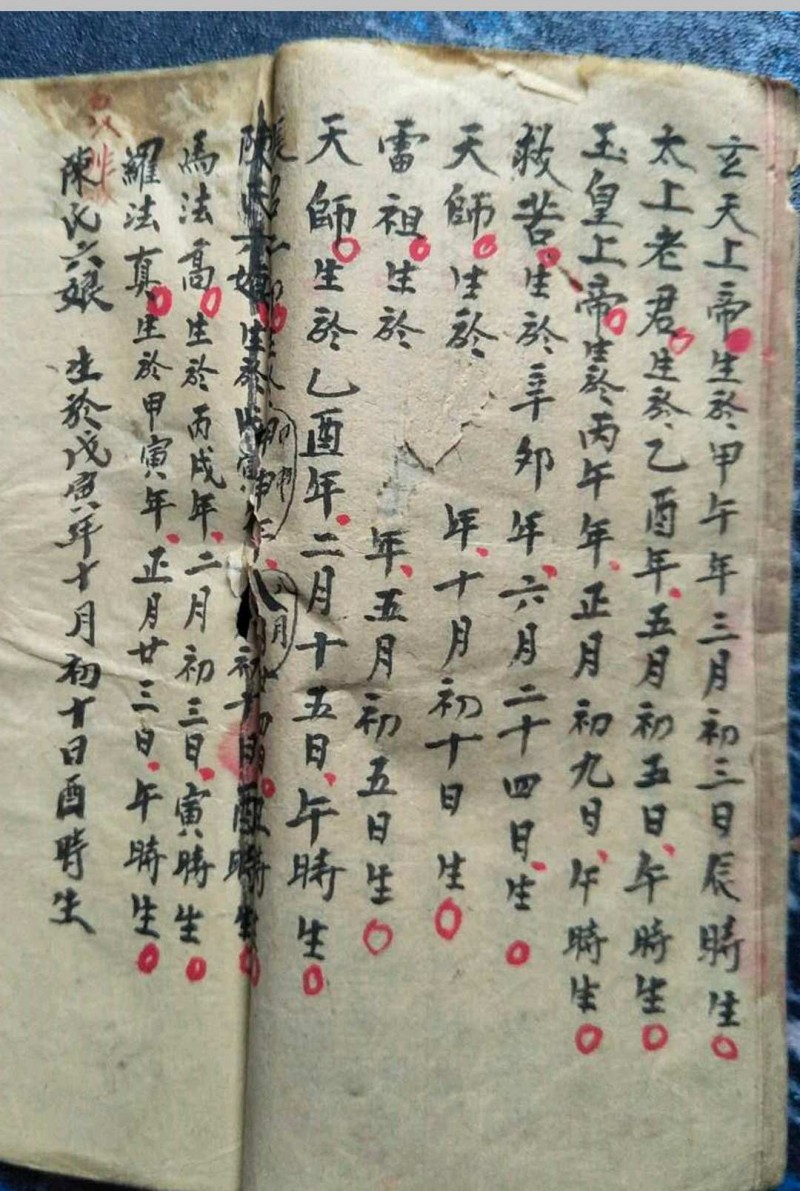 玄天上帝生於甲午年三月初三日辰時生
太上老君生於乙酉年五月初五日午時生
玉皇上帝生於丙午年正月初九日午時生
救苦生於辛卯年六月二十四日生
天師生於年十月初十日生
雷祖生於年五月初五日生
天師生於乙酉年二月十五日午時生
馬法高生於丙戌年二月初三日寅時生
羅法真生於甲寅年正月廿三日午時生
陳氏六娘生於戊寅年十月初十日酉時生